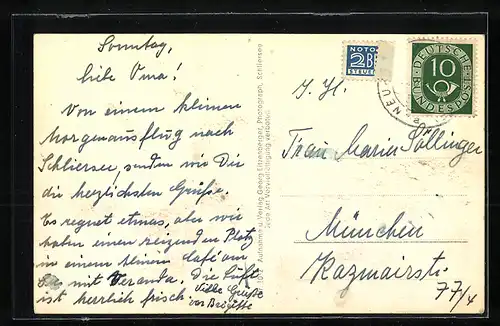 Sonntag,
liebe Oma!
Von einem kleinen
Morgenausflug nach
Schliersee, senden wir Dir
die herzlichsten Grüße.
Es regnet etwas, aber wir
haben einen reizenden Platz
in einem kleinen Café am
See mit Veranda. Die Luft
ist herrlich frisch.
Viele Grüße
von Brigitte
Aufnahme u. Verlag Georg Eitzenberger, Photograph, Schliersee
Jede Art Vervielfältigung verboten
NOTO
2
STEUER
DEUTSCHE BUNDESPOST
10
NEU
I. H.
Frau Maria Söllinger
München
Kazmairstr.
77/4